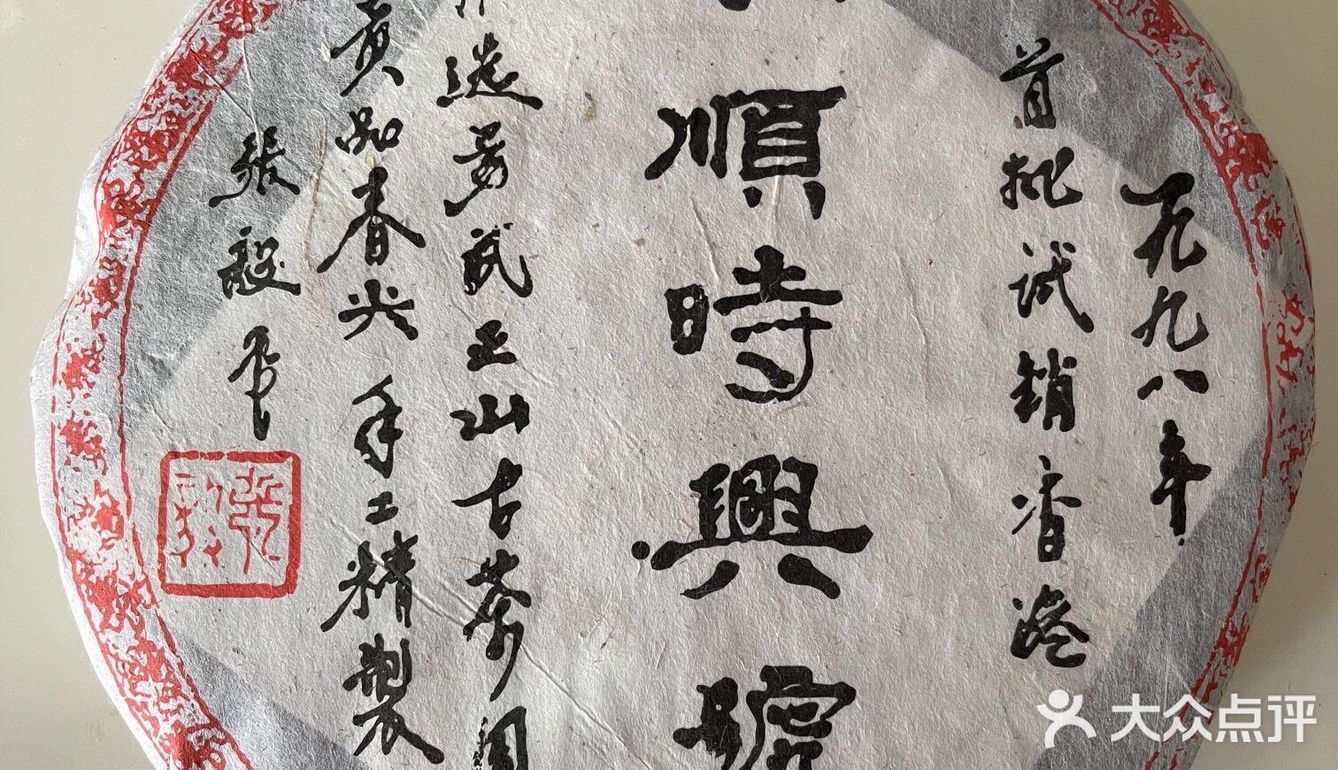 一九九八年
首批试销香港
順時興號
选易武正山古茶园
贡品春尖手工精製
張毅
大众点评